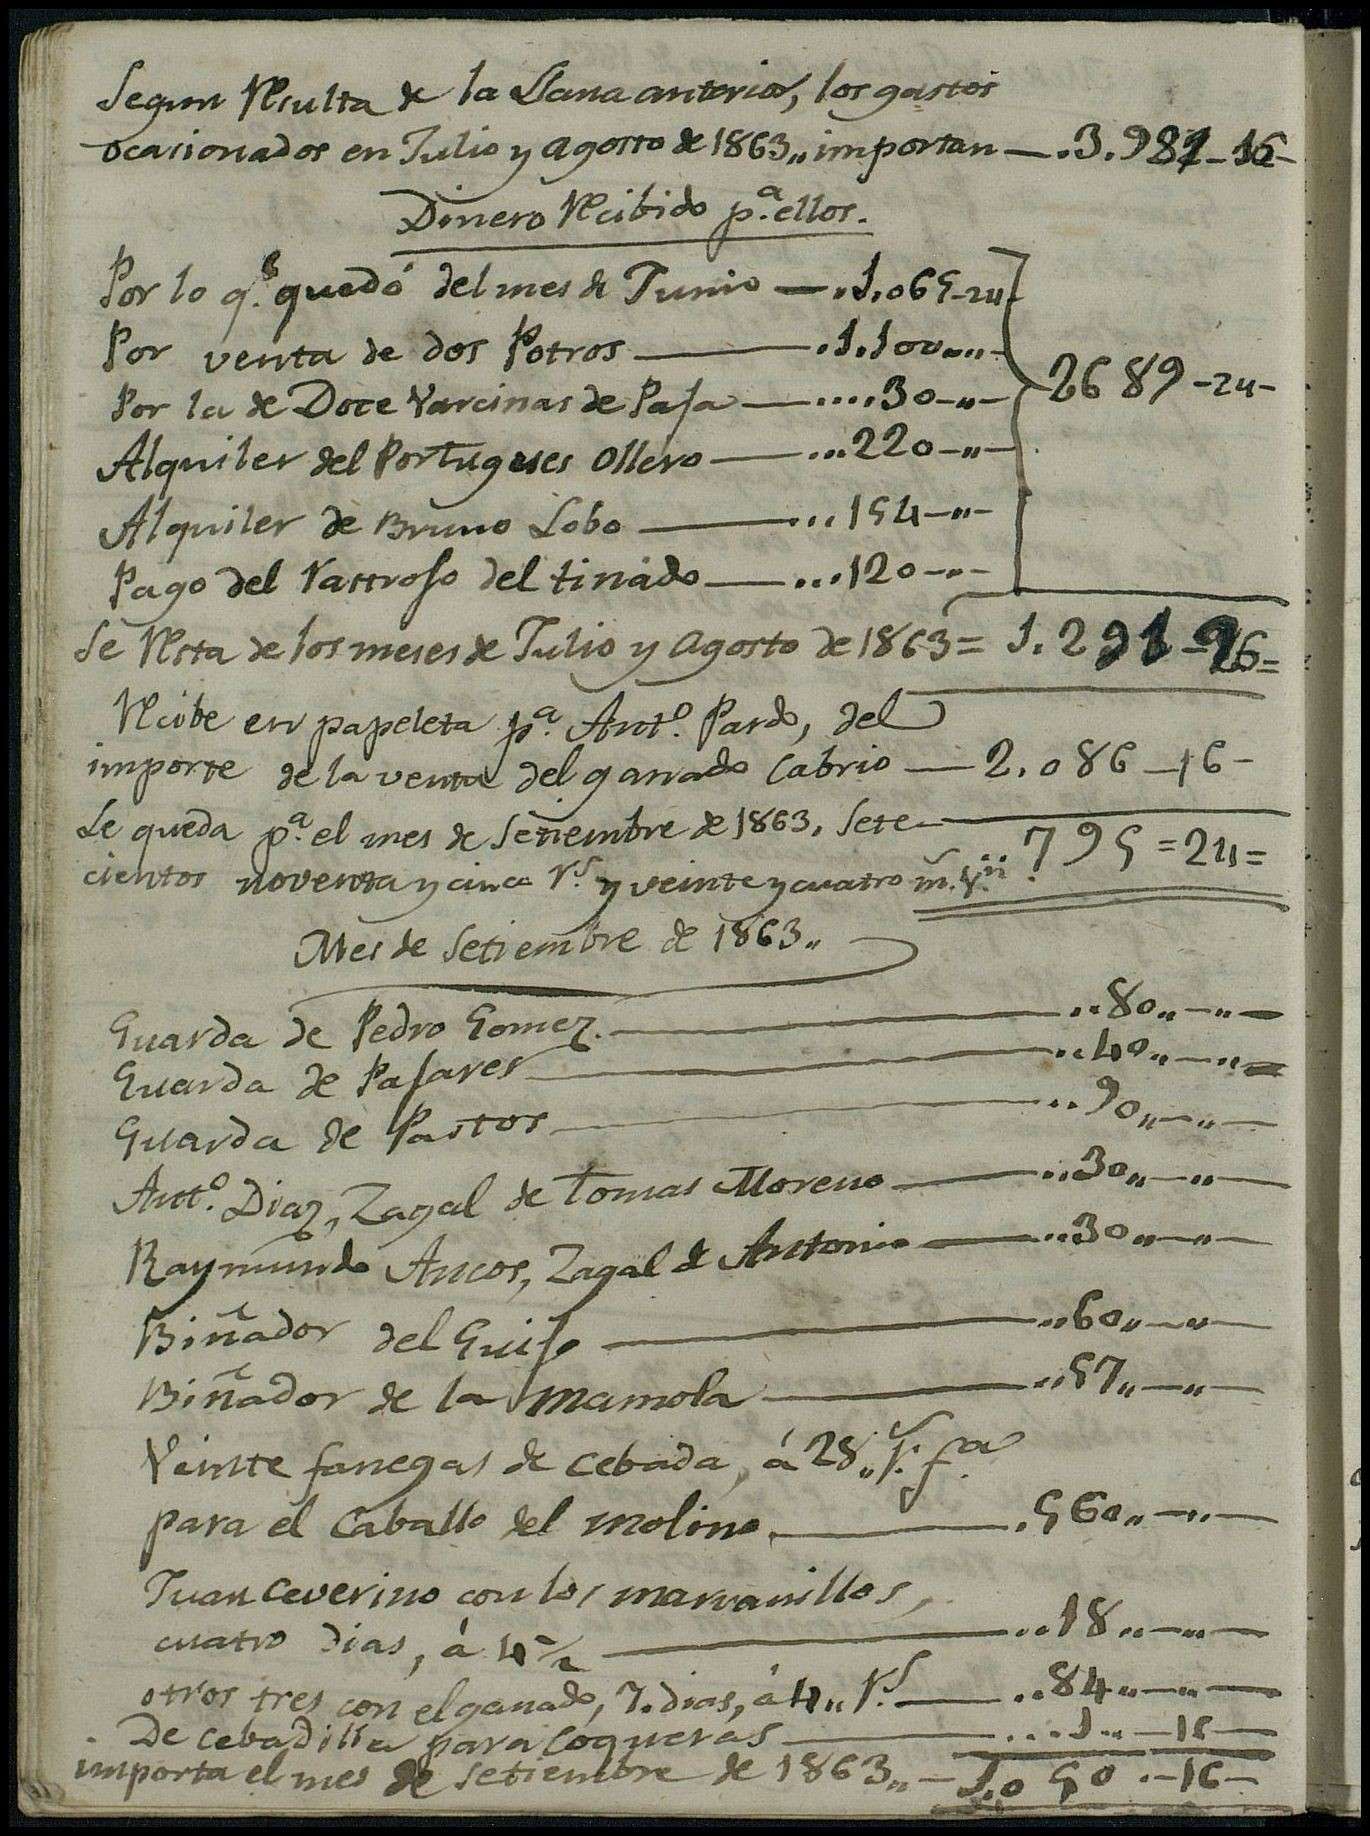 Segun Resulta de la Llana anterior, los gastos
ocasionados en Julio y Agosto de 1863,, importan — . 3.981 - 16 -
Dinero Recibido p.ª ellos.
Por lo q.e quedó del mes de Junio — . 1.065 - 24 -
Por venta de dos Potros — . 1.100 „ -
Por la de Doce Varcinas de Paja — .... 30 - „ -
2689 - 24 -
Alquiler del Portugues Ollero — ... 220 - „ -
Alquiler de Bruno Lobo — ... 154 - „ -
Pago del Rastrojo del tinado — ... 120 - „ -
Se Resta de los meses de Julio y Agosto de 1863 = 1.291 - 26 =
Recibe en papeleta p.ª Ant.º Pardo, del
importe de la venta del ganado Cabrio — 2.086 - 16 -
Le queda p.ª el mes de Setiembre de 1863, sete-
cientos noventa y cinco r.s y veinte y cuatro m. v.n : 795 = 24 =
Mes de Setiembre de 1863„
Guarda de Pedro Gomez. — .. 80„ - „ -
Guarda de Pajares — .. 40„ - „ -
Guarda de Pastos — .. 90„ - „ -
Ant.º Diaz, Zagal de Tomas Moreno — .. 30„ - „ -
Raymundo Ancos, Zagal de Antonio — .. 30„ - „ -
Biñador del Guijo — .. 60„ - „ -
Biñador de la Mamola — .. 57„ - „ -
Veinte fanegas de Cebada, á 28„ r.s f.ª
para el Caballo del Molino — . 560„ - „ -
Juan Ceverino con los marranillos,
cuatro dias, á 4 ½ — .. 18„ - „ -
otros tres con el ganado, 7. dias, á 4„ r.s — .. 84„ - „ -
De Cebadilla para Coqueras — ... 1„ - 16 -
importa el mes de Setiembre de 1863„ — 1.050 . - 16 -